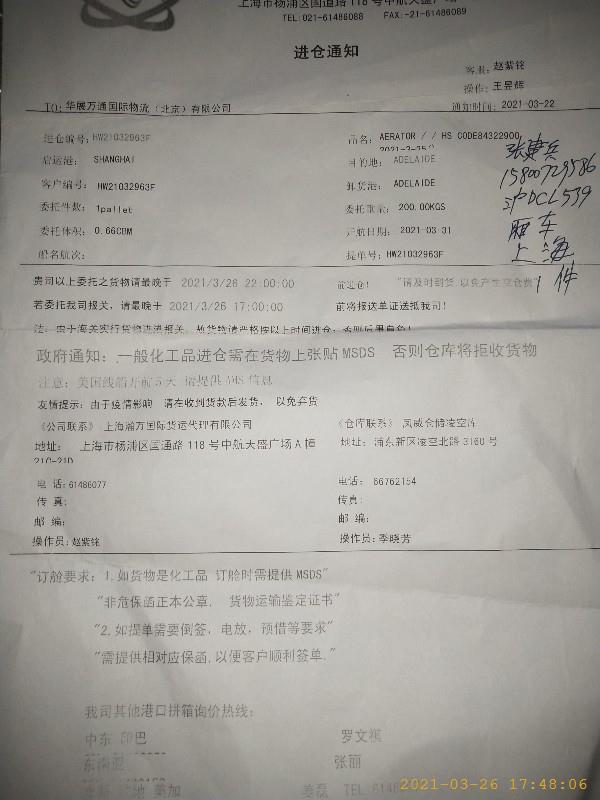 上海市杨浦区国道路118号中航大盛广
TEL:021-61486088 FAX:-21-61486089
进仓通知
客服: 赵紫铭
操作: 王昱辉
TO: 华展万通国际物流（北京）有限公司
通知时间: 2021-03-22
进仓编号: HW21032963F
品名: AERATOR // HS CODE84322900
启运港: SHANGHAI
目的地: ADELAIDE
客户编号: HW21032963F
卸货港: ADELAIDE
委托件数: 1pallet
委托重量: 200.00KGS
委托体积: 0.66CBM
开航日期: 2021-03-31
船名航次:
提单号: HW21032963F
张建兵
15800729586
沪DCL539
厢车
上海
1件
贵司以上委托之货物请最晚于 2021/3/26 22:00:00 前进仓! "请及时到货,以免产生空仓费"
若委托我司报关, 请最晚于 2021/3/26 17:00:00 前将报送单证送抵我司!
注: 由于海关实行货物进港报关, 故货物请严格按以上时间进仓; 否则后果自负!
政府通知: 一般化工品进仓需在货物上张贴MSDS 否则仓库将拒收货物
注意: 美国线船开前5天 请提供AMS信息
友情提示: 由于疫情影响 请在收到货款后发货, 以免弃货
《公司联系》 上海瀚万国际货运代理有限公司
《仓库联系》 凤威仓储凌空库
地址: 上海市杨浦区国通路118号中航大盛广场A幢
21C-21D
地址: 浦东新区凌空北路3160号
电话: 61486077
电话: 66762154
传真:
传真:
邮编:
邮编:
操作员: 赵紫铭
操作员: 季晓芳
"订舱要求: 1.如货物是化工品 订舱时需提供MSDS"
"非危保函正本公章, 货物运输鉴定证书"
"2.如提单需要倒签, 电放, 预借等要求"
"需提供相对应保函,以便客户顺利签单."
我司其他港口拼箱询价热线:
中东 印巴 罗文祺
东南亚 张丽
美加 姜磊 TEL 614
2021-03-26 17:48:06